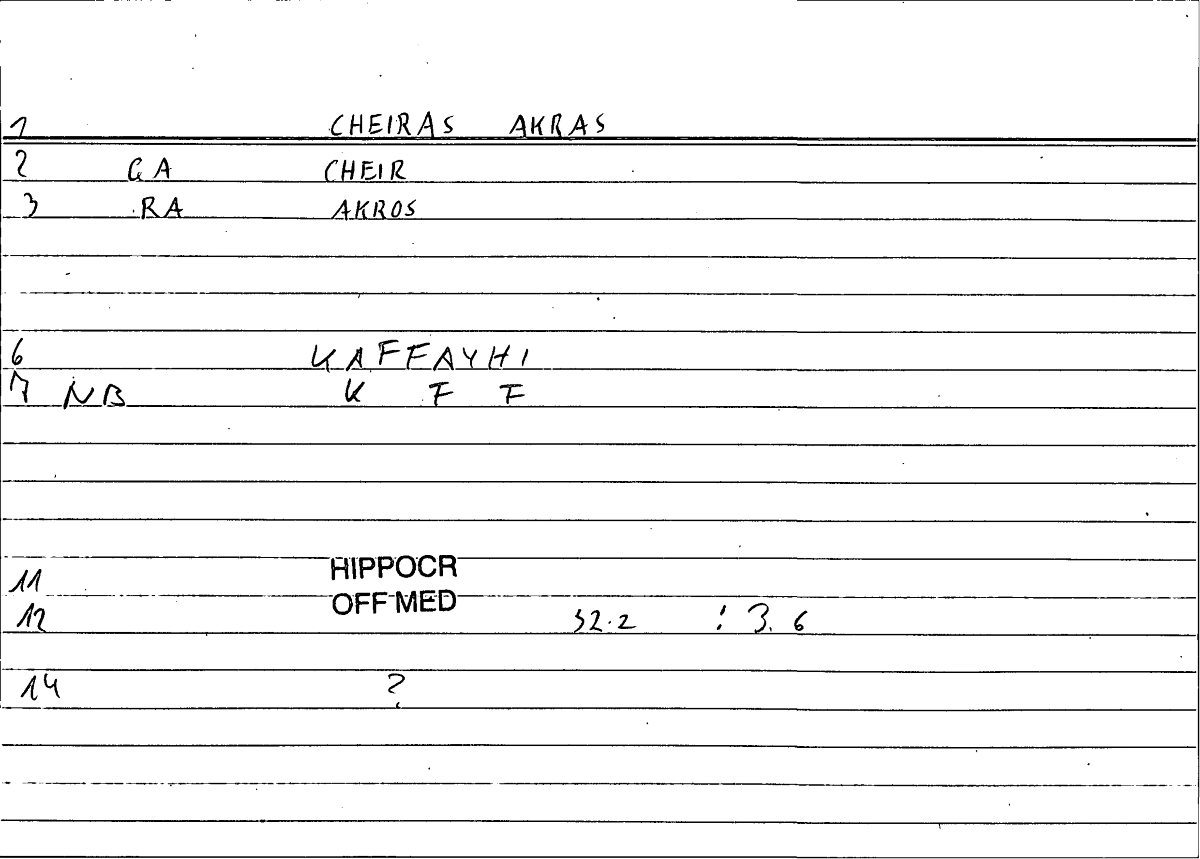 1 CHEIRAS AKRAS
2 GA CHEIR
3 RA AKROS
6 KAFFAYHI
7 NB K F F
11 HIPPOCR
12 OFF MED 32.2 : 3. 6
14 ?